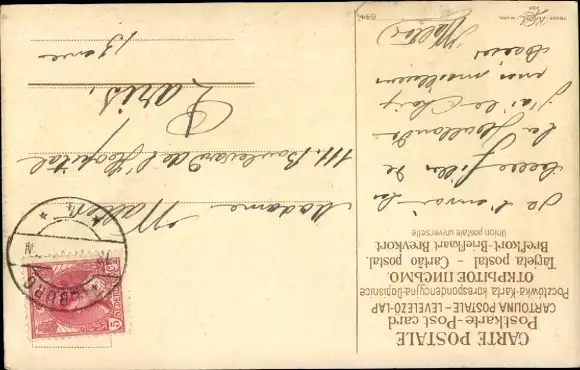 CARTE POSTALE
Postkarte-Post card
CARTOLINA POSTALE - LEVELEZÖ-LAP
Pocztówka-Karta korespondencyjna-Dopisnice
ОТКРЫТОЕ ПИСЬМО
Tarjeta postal - Cartão postal.
Brefkort-Briefkaart Brevkort
Union postale universelle
Je t'envoi les
belle filles de
la Hollande
j'ai le
mes meilleurs
Baises
Madame
111. Boulevard de l'Hopital
Paris.
13eme
5